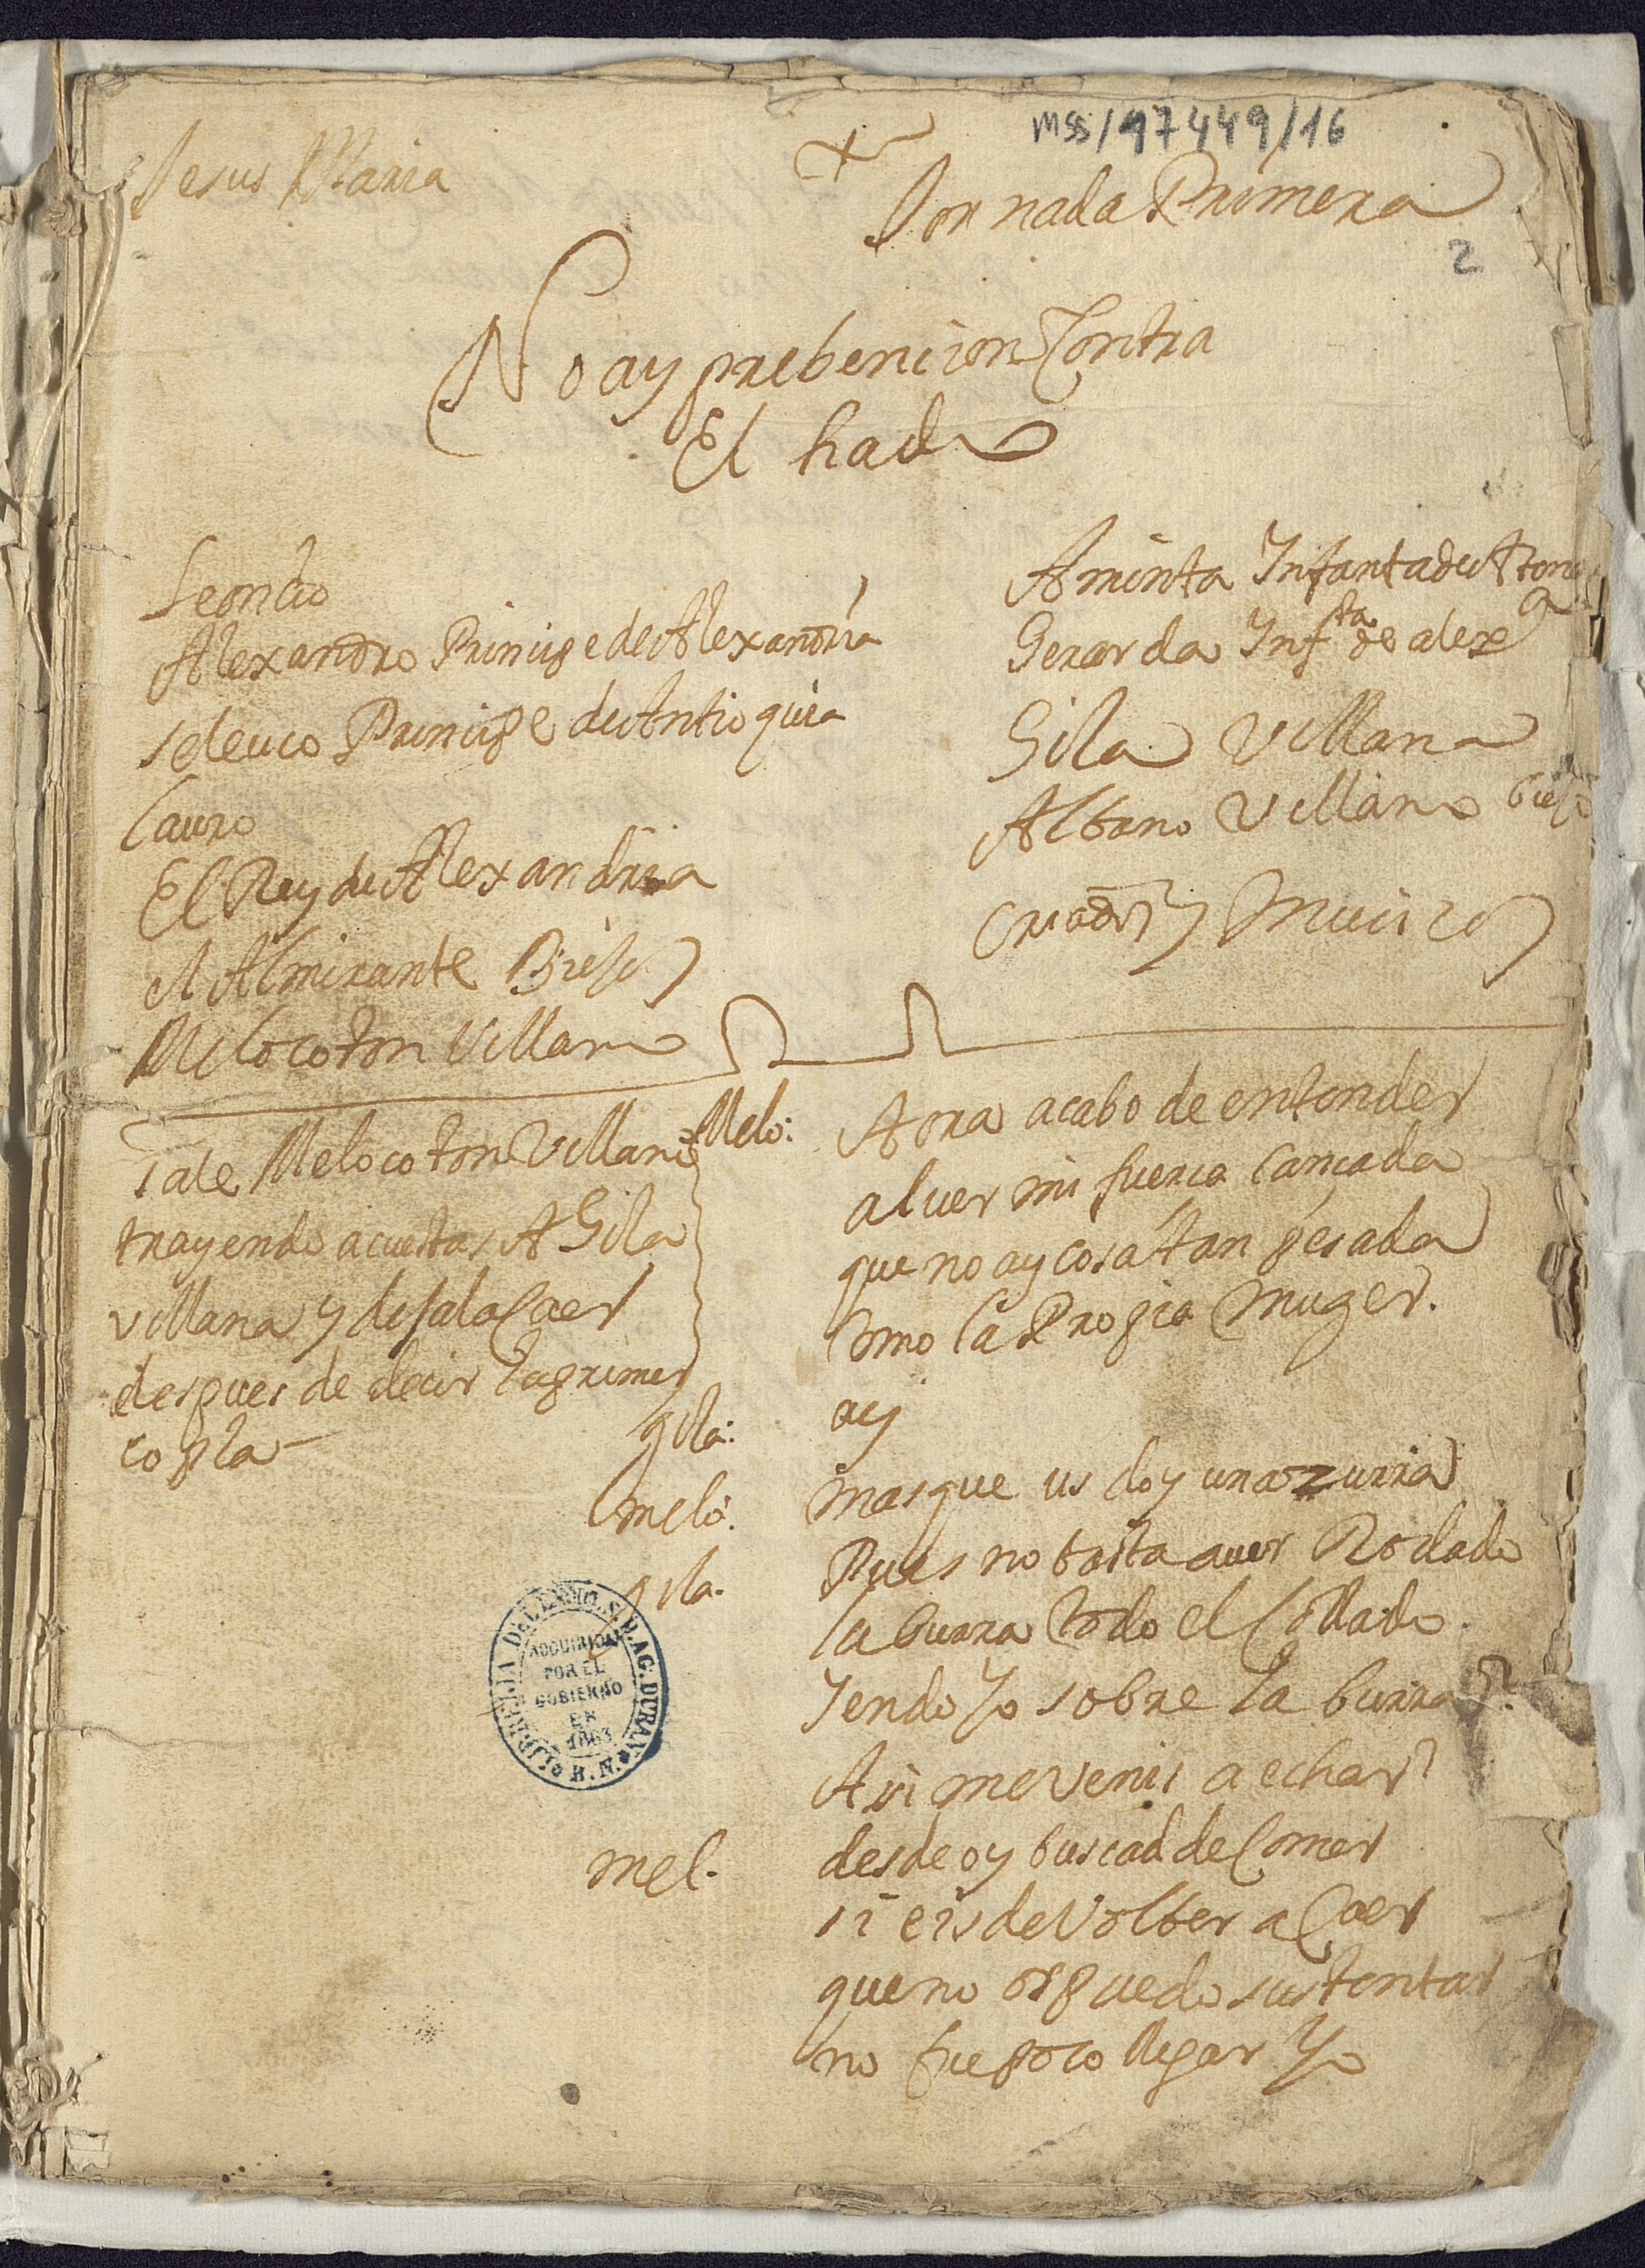 Jesus Maria
mss/97449/16
Jornada Primera
2
No ay prebencion Contra
El hado
Leoncio
Alexandro Principe de Alexandria
seleuco Principe de Antioquia
lauro
El Rey de Alexandria
el Almirante Biejo
Melocoton Villano
Aminta Infanta de
Gerarda Infta de alexa
Gila Villana
Albano Villano biejo
criados y Musicos
sale Melocoton Villano
trayendo acuestas A Gila
villana y dejala Caer
despues de decir la primer
copla
Melo: Aora acabo de entender
al ver mi fuerça cansada
que no ay cosa tan pesada
Como la Propia Muger.
gila: ay
melo: mas que us doy una zurria
gila. Pues no basta auer Rodado
la burra todo el Collado
yendo yo sobre la burra?
Asi me venis a echar?
mel. desde oy buscad de Comer
si eis de volber a Caer
que no os puedo sustentar
no fue poco llegar yo
LIBRERIA DEL EXMO. S. D. AG. DURAN. B. N.
ADQUIRIDA
POR EL
GOBIERNO
EN
1863